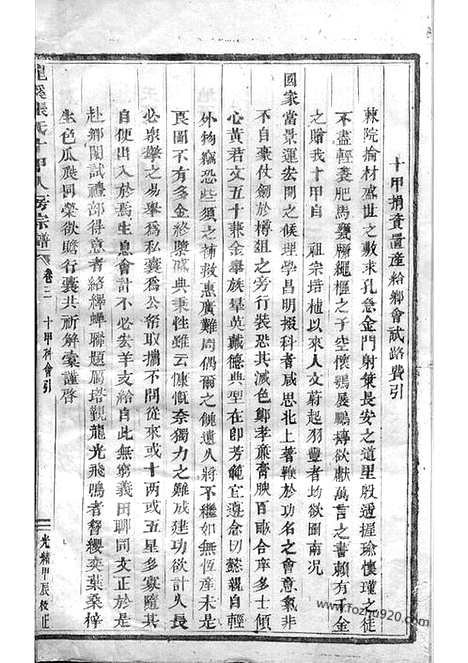 十甲捐資置產給鄉會試路費引
棘院掄材盛世之敷求孔急金門射策長安之道里殷遥握瑜懷瑾之徒
不盡輕裘肥馬甕牖繩樞之子空懷鶚展鵬摶欲獻萬言之書賴有千金
之贈我十甲自 祖宗培植以來人文蔚起羽豐者均欲圖南况
國家當景運宏開之候理學昌明掇科者咸思北上著鞭於功名之會意氣非
不自豪仗劍於樽俎之交行裝恐其減色鄭孝廉膏腴百畝澤多士傾
心黃君文五十兼金舉族羣英戴德典型在卽芳範宜遵會忝切懿親自
外物竊恐些須之補救惠廣難周偶爾之仁慨遺久將不繼如無恆產未是
良圖不有多金終隳盛典秉性雖云慷慨奈獨力之難成建功欲計久長
必衆擎之易舉爲私囊爲公帑取攜不同從來或十兩或五星多寡隨其
自便入於焉生息會計不必宏羊支給自此無窮義田聊同文正於是
赴鄉闈試禮部得意者絡繹蟬聯題鴈塔觀龍光飛鳴者簪纓奕葉桑梓
生色瓜瓞同榮欲贈行囊共祈解橐謹啓
龍溪張氏十甲八房宗譜 卷二 十甲科會引
光緒甲辰敘正
www.fozhu920.com